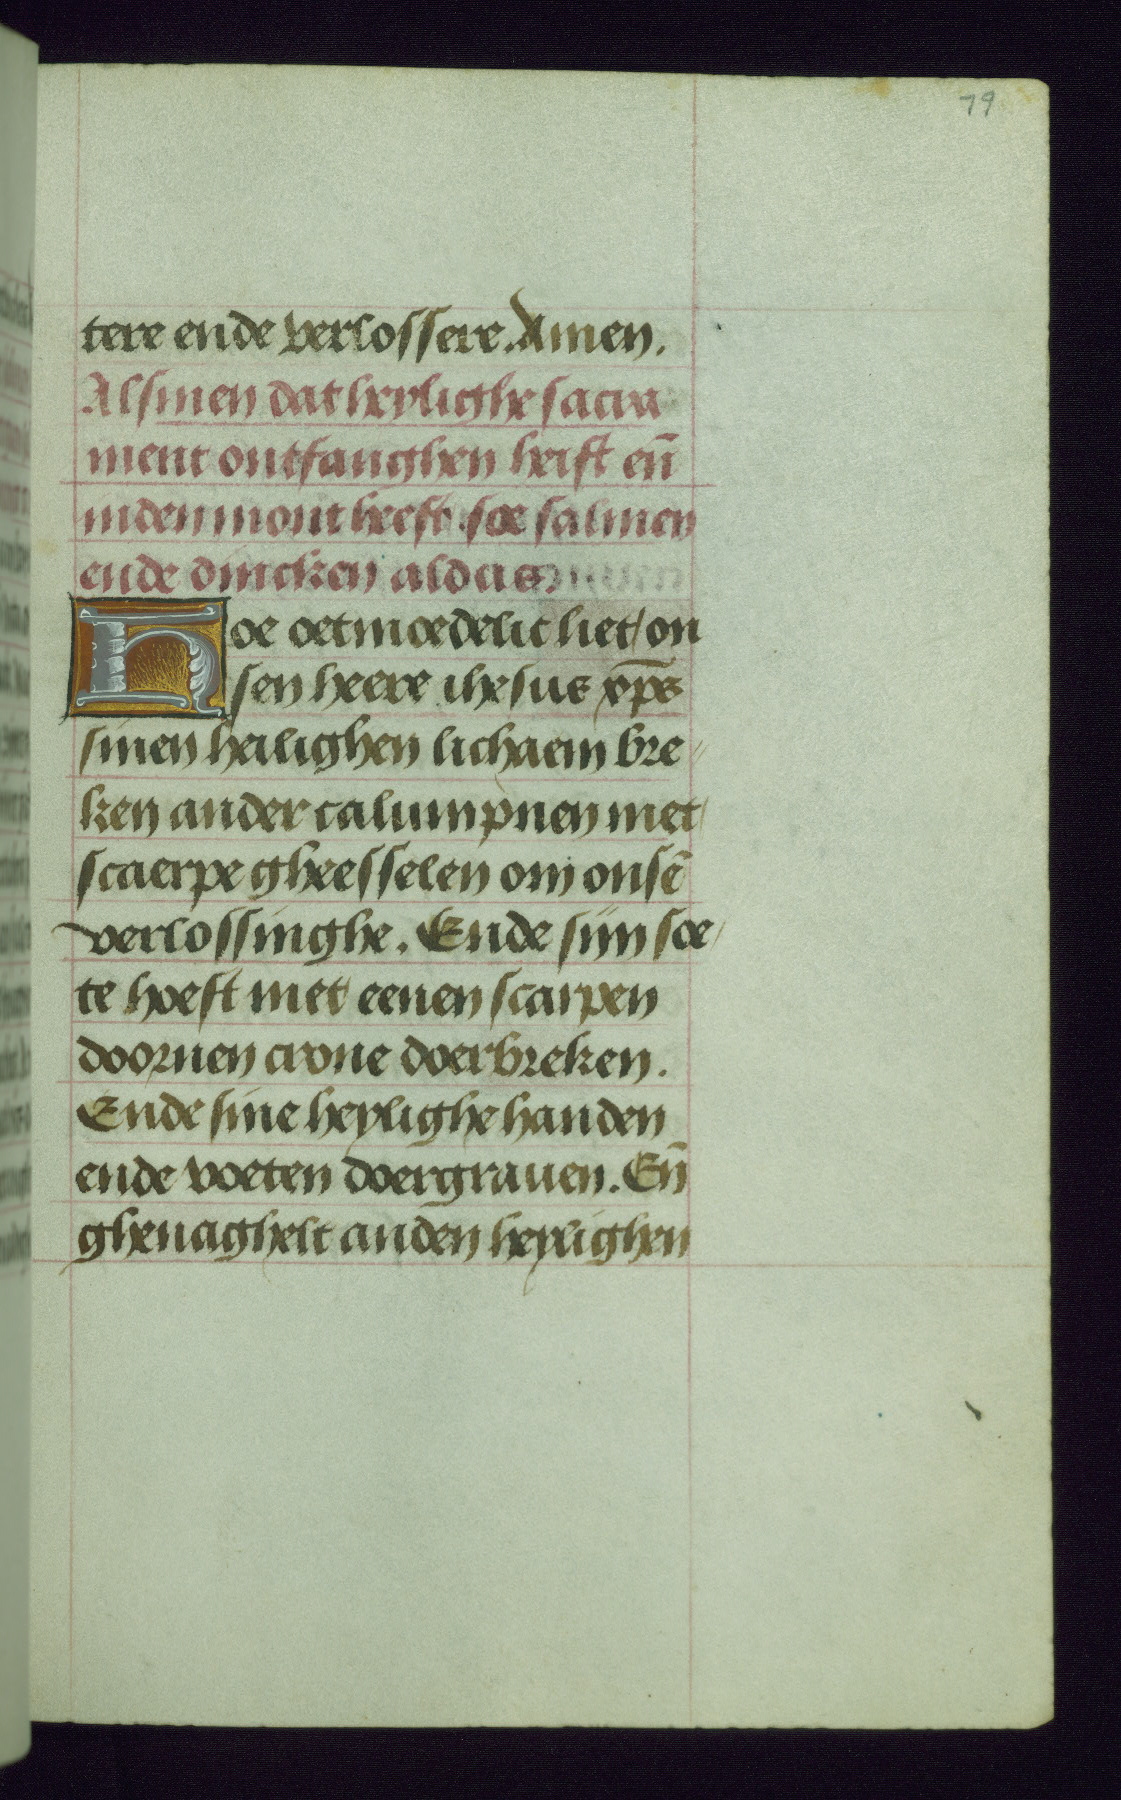 79
tere ende verlossere. Amen.
Alsmen dat heylighe sacra
ment ontfanghen heift en̄
inden mont heeft soe salmen
ende dincken aldus.
Hoe oetmoedelic liet on
sen heere ihesus xp̄s
sinen heilighen lichaem bre
ken ander calumpnen met
scaerpe gheesselen om onsē
verlossinghe. Ende sijn soe
te hoeft met eenen scarpen
doornen crone doerbreken.
Ende sine heylighe handen
ende voeten doergrauen. En̄
ghenaghelt anden heylighen